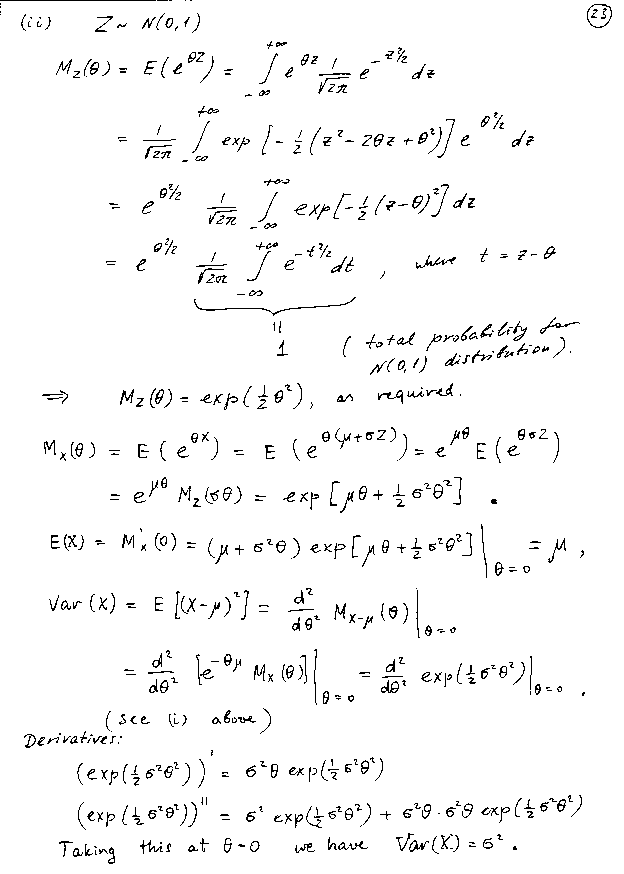 (ii) Z ~ N(0,1) 23
M_Z(θ) = E(e^{θZ}) = ∫_{-∞}^{+∞} e^{θz} 1/√(2π) e^{-z²/2} dz
= 1/√(2π) ∫_{-∞}^{+∞} exp[-½(z² - 2θz + θ²)] e^{θ²/2} dz
= e^{θ²/2} 1/√(2π) ∫_{-∞}^{+∞} exp[-½(z-θ)²] dz
= e^{θ²/2} 1/√(2π) ∫_{-∞}^{+∞} e^{-t²/2} dt , where t = z - θ
||
1 (total probability for
N(0,1) distribution).
⇒ M_Z(θ) = exp(½θ²), as required.
M_X(θ) = E(e^{θX}) = E(e^{θ(μ+σZ)}) = e^{μθ} E(e^{θσZ})
= e^{μθ} M_Z(σθ) = exp[μθ + ½σ²θ²] .
E(X) = M'_X(0) = (μ + σ²θ) exp[μθ + ½σ²θ²] |_{θ=0} = μ ,
Var(X) = E[(X-μ)²] = d²/dθ² M_{X-μ}(θ) |_{θ=0}
= d²/dθ² [e^{-θμ} M_X(θ)] |_{θ=0} = d²/dθ² exp(½σ²θ²) |_{θ=0} .
(see (i) above)
Derivatives:
(exp(½σ²θ²))' = σ²θ exp(½σ²θ²)
(exp(½σ²θ²))'' = σ² exp(½σ²θ²) + σ²θ·σ²θ exp(½σ²θ²)
Taking this at θ=0 we have Var(X) = σ² .